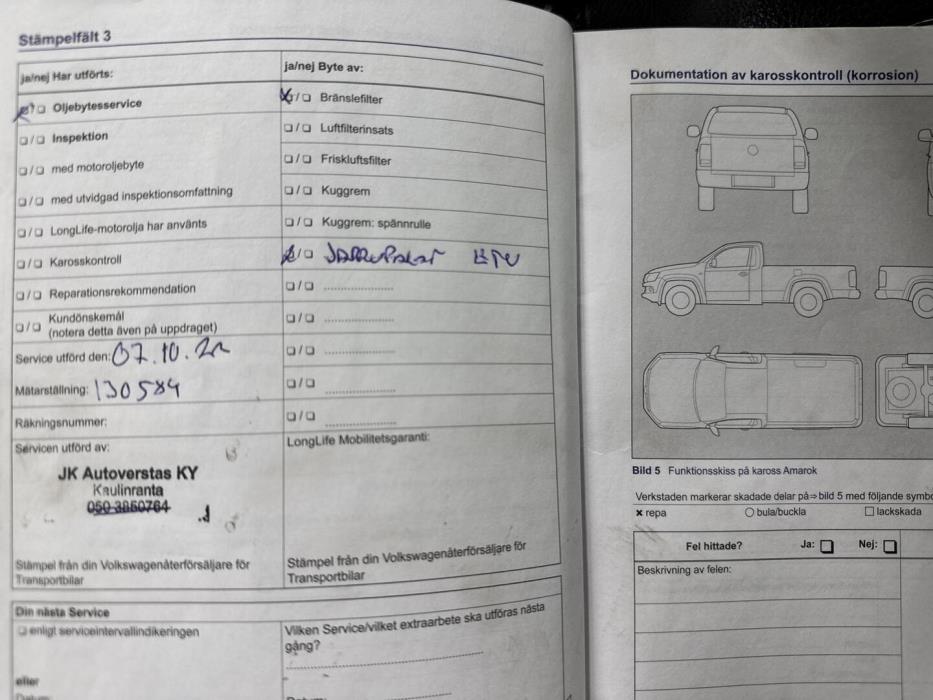 Stämpelfält 3
ja/nej Har utförts:
Oljebytesservice
Inspektion
med motoroljebyte
med utvidgad inspektionsomfattning
LongLife-motorolja har använts
Karosskontroll
Reparationsrekommendation
Kundönskemål
(notera detta även på uppdraget)
Service utförd den: 07.10.22
Mätarställning: 130584
Räkningsnummer:
Servicen utförd av:
JK Autoverstas KY
Kaulinranta
050 3860764
Stämpel från din Volkswagenåterförsäljare för
Transportbilar
ja/nej Byte av:
Bränslefilter
Luftfilterinsats
Friskluftsfilter
Kuggrem
Kuggrem: spännrulle
JARRUPALAT ETU
LongLife Mobilitetsgaranti:
Stämpel från din Volkswagenåterförsäljare för
Transportbilar
Din nästa Service
enligt serviceintervallindikeringen
eller
Vilken Service/vilket extraarbete ska utföras nästa
gång?
Dokumentation av karosskontroll (korrosion)
Bild 5 Funktionsskiss på kaross Amarok
Verkstaden markerar skadade delar på ⇒ bild 5 med följande symbo
× repa
bula/buckla
lackskada
Fel hittade? Ja: Nej:
Beskrivning av felen: